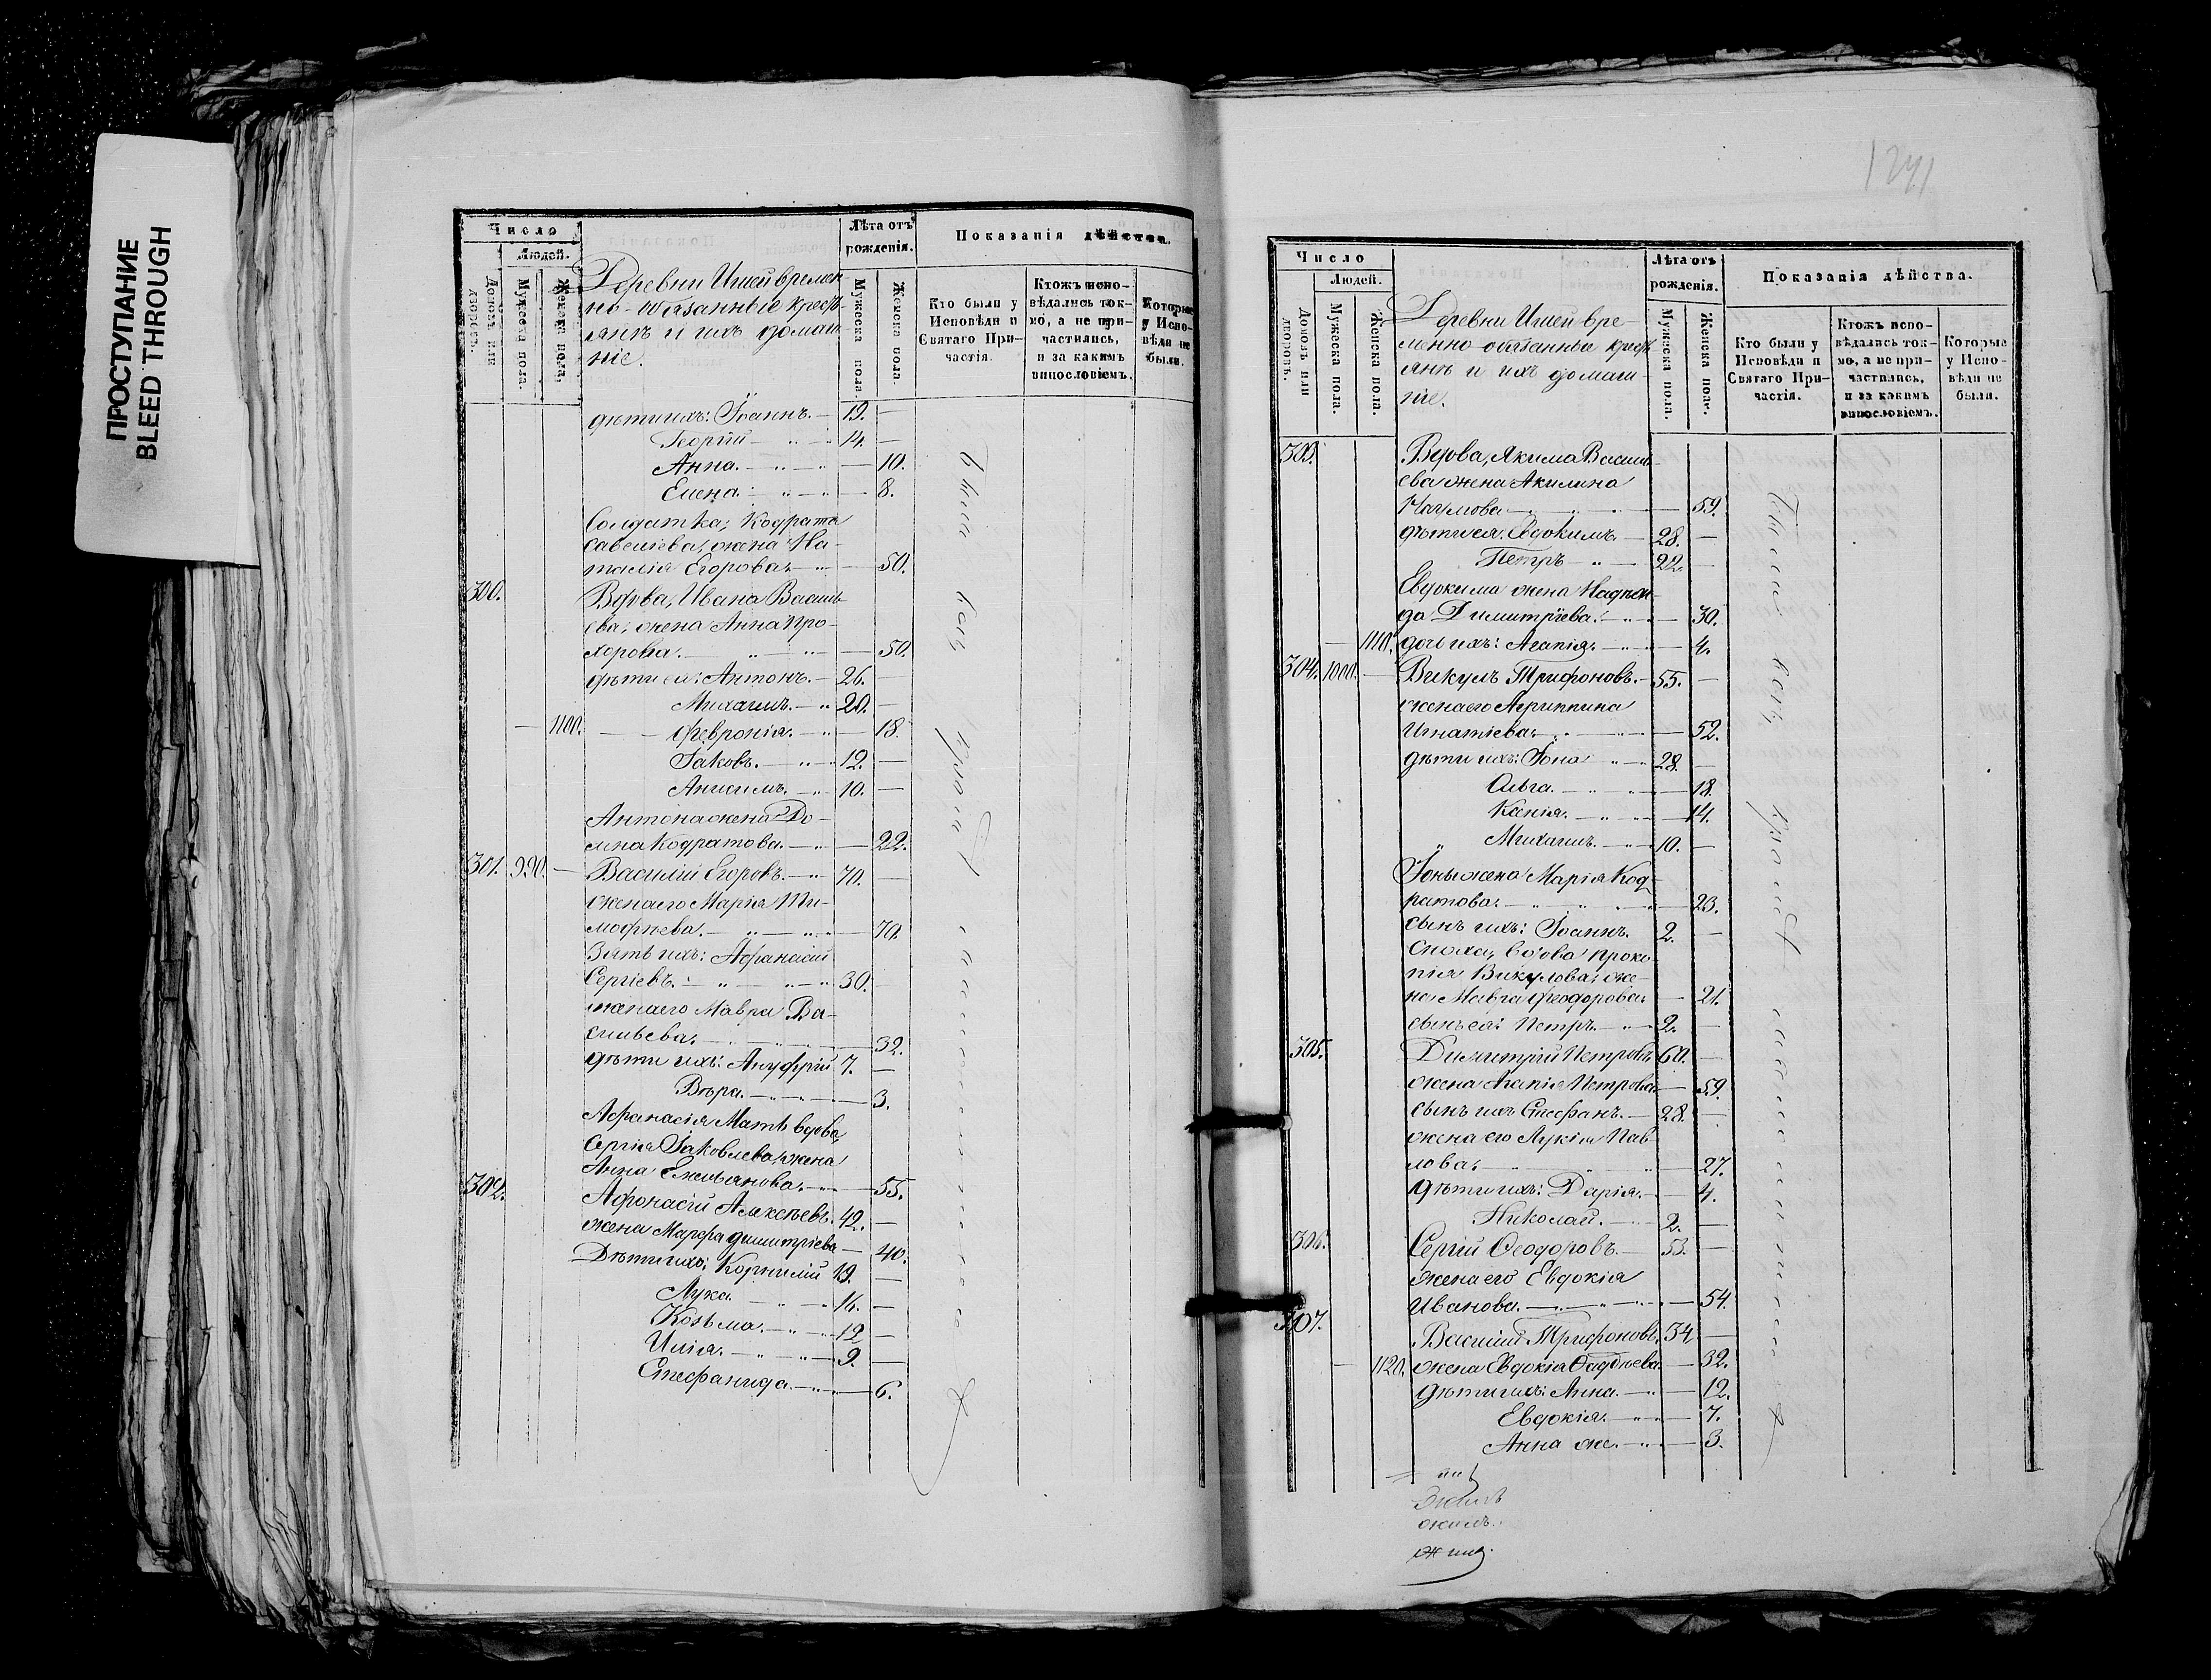 ПРОСТУПАНИЕ
BLEED THROUGH
Число
Людей.
Домовъ или дворовъ.
Мужеска пола.
Женска пола.
Деревни
времен
но-обязанные кресть
янѣ и ихъ домаш
ніе.
Лѣта отъ
рожденія.
Мужеска пола.
Женска пола.
Показанія дѣйства.
Кто были у
Исповѣди и
Святаго При-
частія.
Ктожъ испо-
вѣдались ток-
мо, а не при-
частились,
и за какимъ
винословіемъ.
Которые
у Испо-
вѣди не
были.
дѣти ихъ: Іоаннъ. — 19. —
Георгій — " — 14. —
Анна. — " — — 10.
Елена. — " — — 8.
Солдатка, Кодрата
Савельева, жена На-
талія Егорова. — " — — 50.
300. Вдова, Ивана Василь-
ева, жена Анна Про-
хорова. — " — " — — 50.
дѣти ея: Антонъ. — 26. —
Михаилъ. — " 20. —
— 1100. — — Февронія. — " — — 18.
Іаковъ. — " — 12. —
Анисимъ. — " — 10. —
Антона жена До-
мна Кодратова. — " — — 22.
301. 990. — Василій Егоровъ. — " 70. —
жена его Марія Ти-
мофѣева. — " — " — — 70.
Зять ихъ: Афанасій
Сергіевъ. — " — " — " 30. —
жена его Мавра Ва-
сильева. — " — " — — 32.
дѣти ихъ: Ануфрій 7. —
Вѣра. — " — " — — 3.
Афанасія Мать вдова,
Сергія Іаковлева, жена
Анна Емельянова. — " — — 55.
302. Афонасій Алексѣевъ. 42. —
жена Марфа Димитріева — 40.
Дѣти ихъ: Корнилій 19. —
Лука. — " — 16. —
Козьма. — " — 12 —
Илія. — " — " — 9. —
Стефанида. — " — — 6.
Были всѣ
Число
Людей.
Домовъ или дворовъ.
Мужеска пола.
Женска пола.
Деревни
вре-
менно-обязанные кресть
янѣ и ихъ домаш-
ніе.
Лѣта отъ
рожденія.
Мужеска пола.
Женска пола.
Показанія дѣйства.
Кто были у
Исповѣди и
Святаго При-
частія.
Ктожъ испо-
вѣдались ток-
мо, а не при-
частились,
и за какимъ
винословіемъ.
Которые
у Испо-
вѣди не
были.
303. Вдова, Якима Василь-
ева жена Акилина
Наумова — " — " — — 59.
дѣти ея: Евдокимъ. — 28. —
Петръ — " — 22. —
Евдокима жена
Димитріева. — " — — 30.
— 1110. дочь ихъ: Агапія. — " — — 4.
304. 1000. — Викулъ Трифоновъ. — 55. —
жена его Агриппина
Игнатіева. — " — " — — 52.
дѣти ихъ: Іона — " — 28. —
Ольга. — " — " — — 18.
Ксенія. — " — " — — 14.
" Михаилъ. — " — 10. —
Іоны жена Марія Код-
ратова. — " — " — — 23.
сынъ ихъ: Іоаннъ. 2. —
Сноха, вдова Проко-
пія Викулова: же-
на Мавра Феодорова — 21.
сынъ ея: Петръ. — " — 2. —
305. Димитрій Петровъ 60. —
жена Агапія Петрова — 59.
сынъ ихъ Стефанъ. — 28. —
жена его Лукія Пав-
лова. — " — " — — 27.
дѣти ихъ: Дарія. — — 4.
Николай. — " — 2. —
306. Сергій Ѳеодоровъ. — 53. —
жена его Евдокія
Иванова. — " — " — " — 54.
307. Василій Трифоновъ. 34 —
— 1120. жена Евдокія Фаддѣева — 32.
дѣти ихъ: Анна. — " — — 12.
Евдокія. — " — — 7.
Анна же. — " — — 3.
Были всѣ